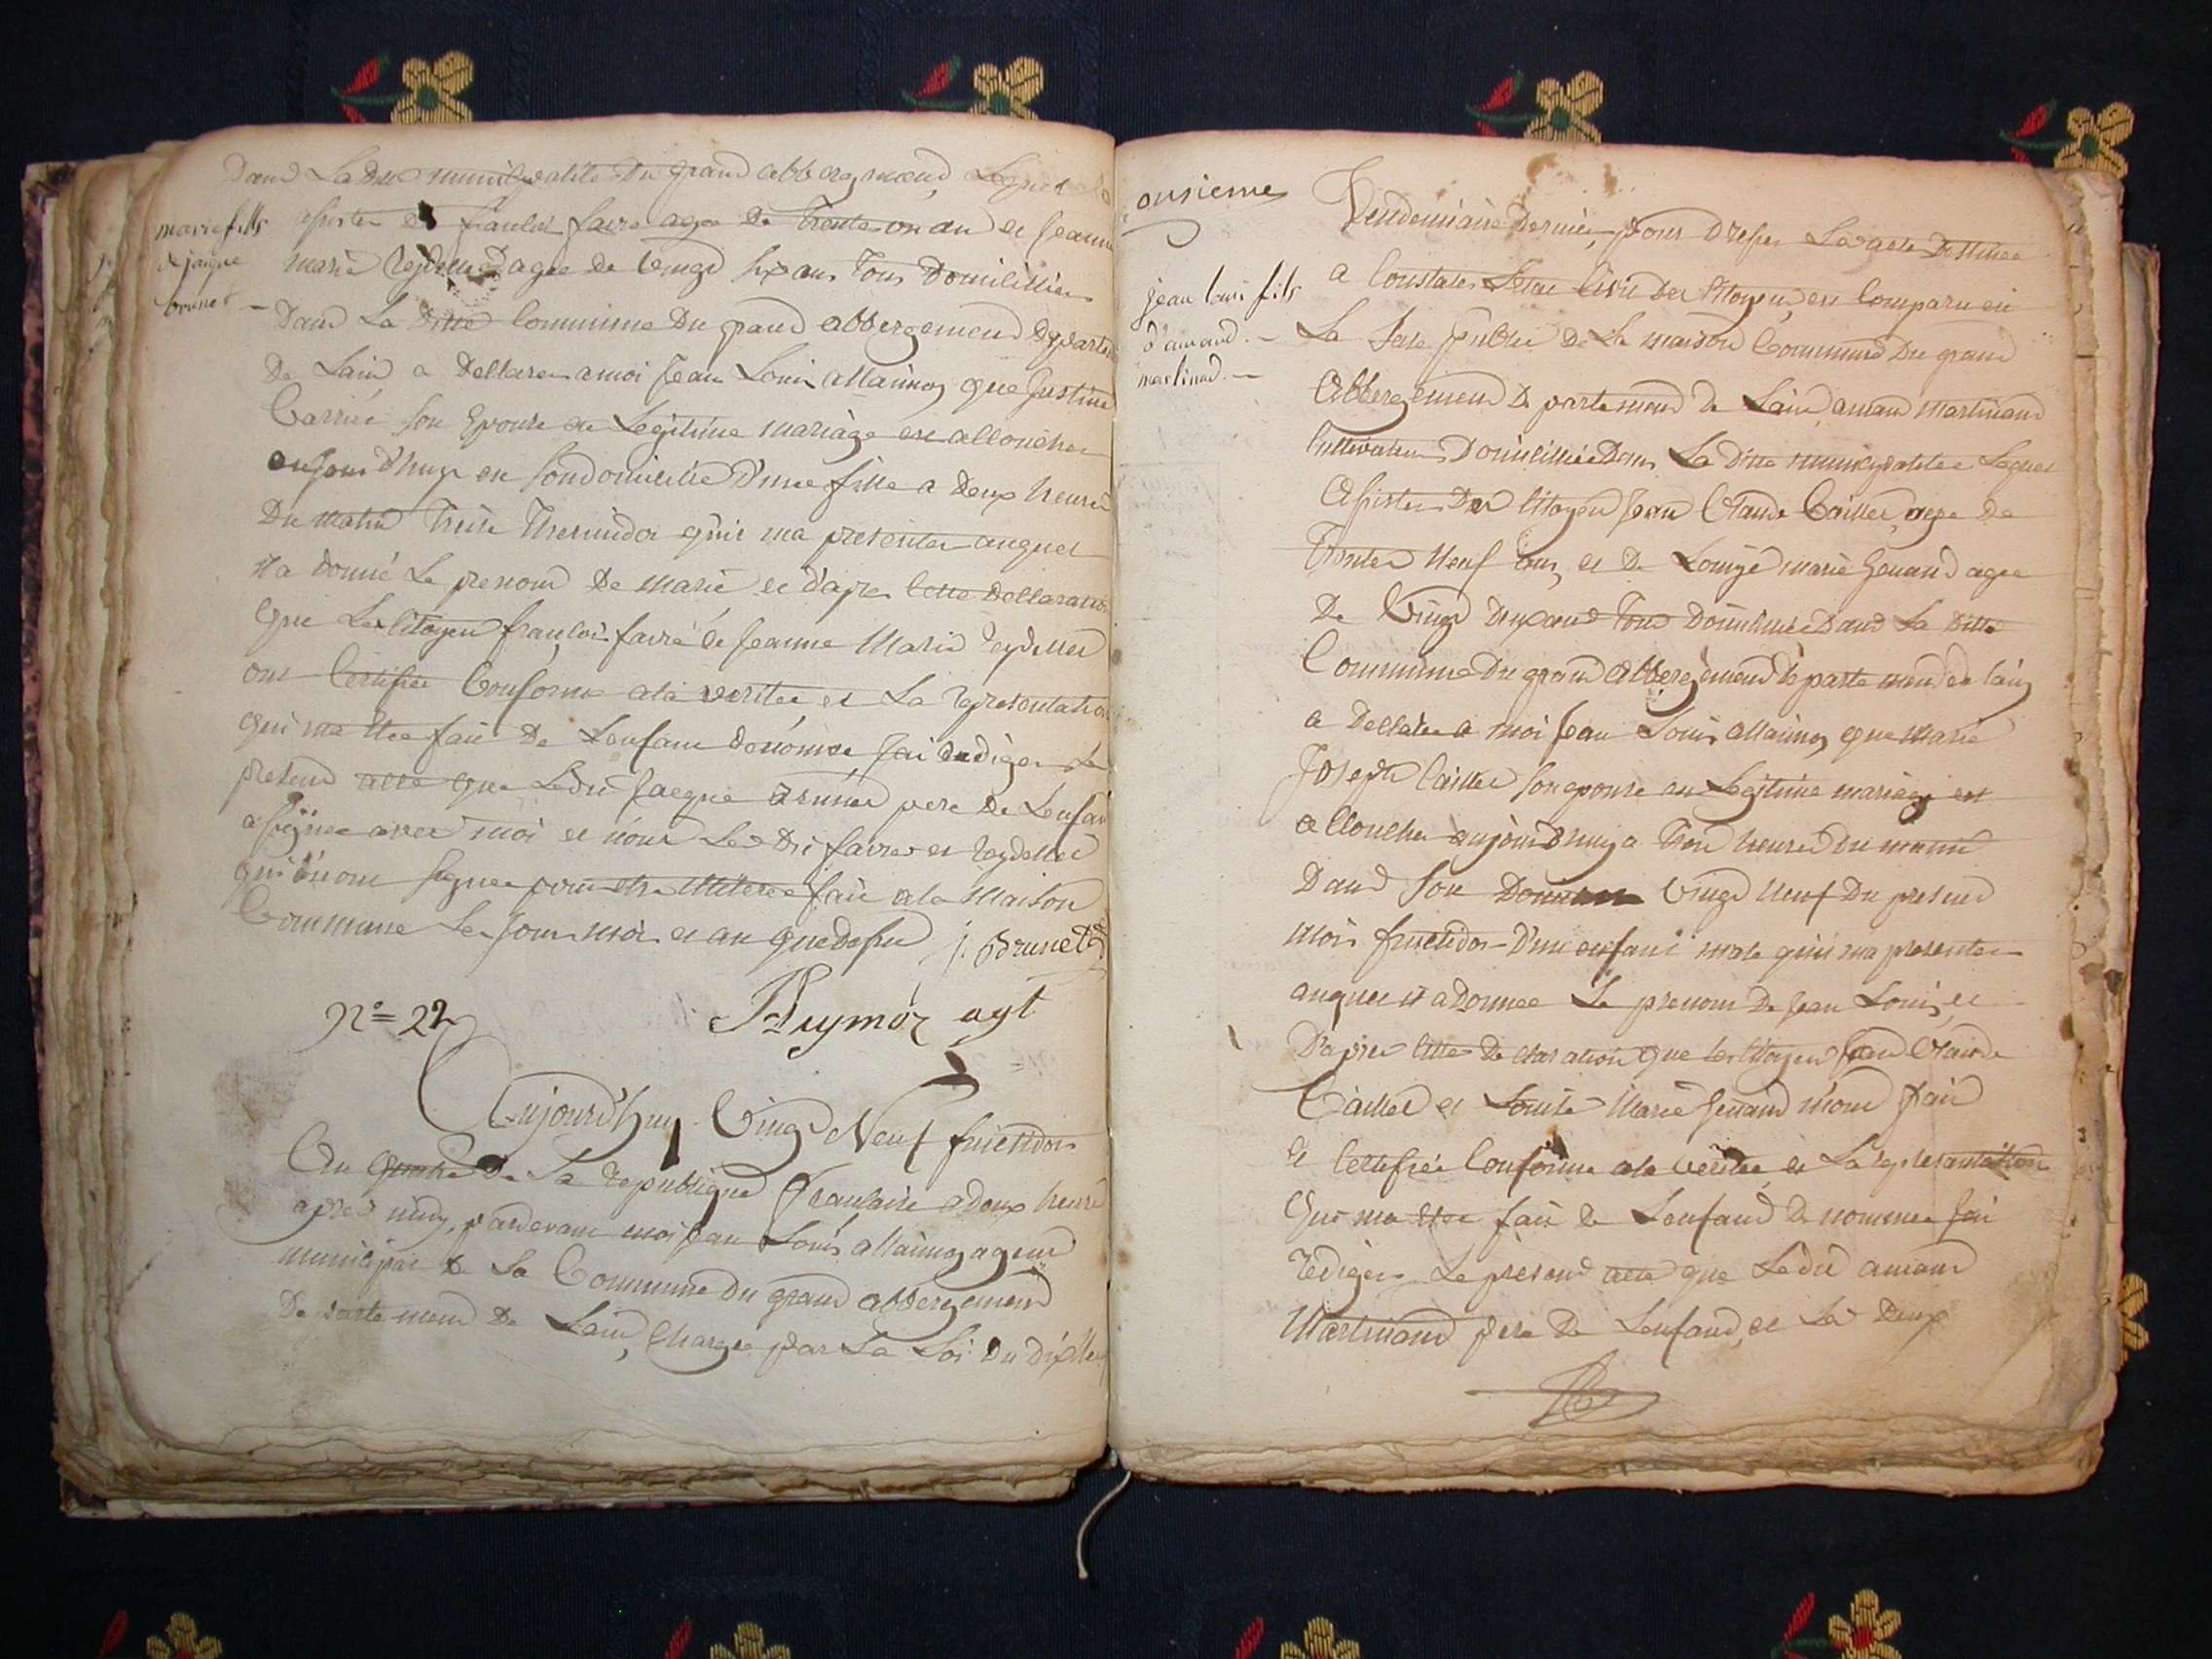 Dans La ditte municipalité du grand abbergemend Lequel
marie fille
de jaque
brunet
assister de francois favre agée de Trente un an et jeanne
marie Reydellet agée de vingd six ans Tous Domicilliers
Dans La ditte Commune Du grand abbergemend Departe
De Laind a Dellarer a moi jean Louis allaimoz que justine
Carrier son Epouse en Legitime mariage est alloucher
aujourd'huy en son domicilie d'une fille a deux heures
Du matin Treise Thermidor qu'il ma presenter auquel
il a donné Le prenom de marie et d'apres Cette dellaration
Que Les Citoyen françois favre et jeanne Marie Reydellet
ont Certifiée Conforme a la veritée et La representation
Qui ma Etee fait De Lenfant dénomée jai Rediger Le
present acte que Ledit jacque Brunet pere De Lenfan
a signee avec moi et nous Les dit favre et Reydellet
qui n'ont signee fait a la Maison
Commune Les jour mois et an que dessu
j. Brunet
Alleymoz agt
N° = 22
Aujourd'huy Vingd Neuf fructidor
An De La republique francaise a Deux heure
apres midy, pardevant moi jean Louis allaimoz agend
municipal de La Commune Du grand abbergemend
De partemend De Laind, Chargée par La Loi Du dix Neuf
onsieme
Vendemiaire Dernier, pour Dresser Les acte Destinee
jean louis fils
d'amand. —
martinand. —
a Constater Letat Civil Des Citoyen, est Comparu en
La Sale public De La maison Commune Du grand
Abbergemend De partemend de Laind amand Martinand
Cultivateur Domicilliée Dans La Ditte municipalitée Lequel
Assister Des Citoyen jean Claude Caillet agee De
Trente Neuf ans, et De Louise marie Genand agee
De Vingd Dux ans Tous Domicilliée Dans La Ditte
Commune Du grand abbergemend De partemend de Laing
a Dellarer a moi jean Louis allaimoz que Marie
Joseph Caillet son epouse en Legitime mariage est
allouchee aujourdhuy a Trois heures Du matin
Dans son Vingd Neuf Du presend
Mois fructidor D'un enfant male qu'il ma presenter
auquel il a donnee Le prenom De jean Louis, et
D'apres Cette Declaration Que les Citoyen jean Claude
Caillet et Louise Marie Genand m'ond fait
Et Certifiée Conforme a la veritée et La representation
Qui ma Etee fait de Lenfand de nommee jai
Rediger Le presend acte que Ledit amand
Martinand pere De Lenfand, et Les Deux